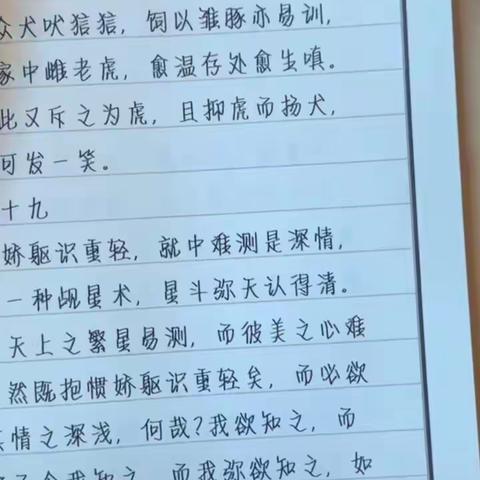 众犬吠狺狺，饲以雏豚亦易训，
家中雌老虎，愈温存处愈生嗔。
此又斥之为虎，且抑虎而扬犬，
可发一笑。
十九
娇躯识重轻，就中难测是深情，
一种觇星术，星斗弥天认得清。
天上之繁星易测，而彼美之心难
然既抱惯娇躯识重轻矣，而必欲
情之深浅，何哉？我欲知之，而
我知之，而我弥欲知之，如